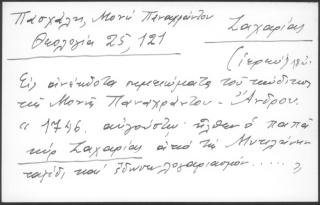 Πασχάλης, Μονή Παναχράντου
Θεολογία 25, 121
Ζαχαρίας
(ἱερεύς) 18αι.
Εἰς ἀνέκδοτα σημειώματα τοῦ κώδικος
τῆς Μονῆς Παναχράντου - Ἄνδρου.
"1746. αὐγούστου ἦλθεν ὁ παπᾶ
κύρ Ζαχαρίας ἀπό τῆς Μυτιλήνης
ταξίδι καί ἔδωκε λογαριασμόν ..... "